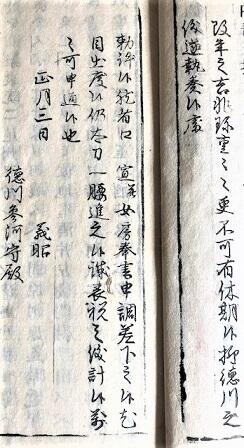 改年之吉兆珍重々々更不可有休期候抑徳川之
儀遂執奏候處
勅許候然者口 宣并女房奉書申調差下之候尤
目出度候仍太刀一腰進之候誠表祝之儀計候万
々可申通候也
正月三日
義昭
徳川参河守殿